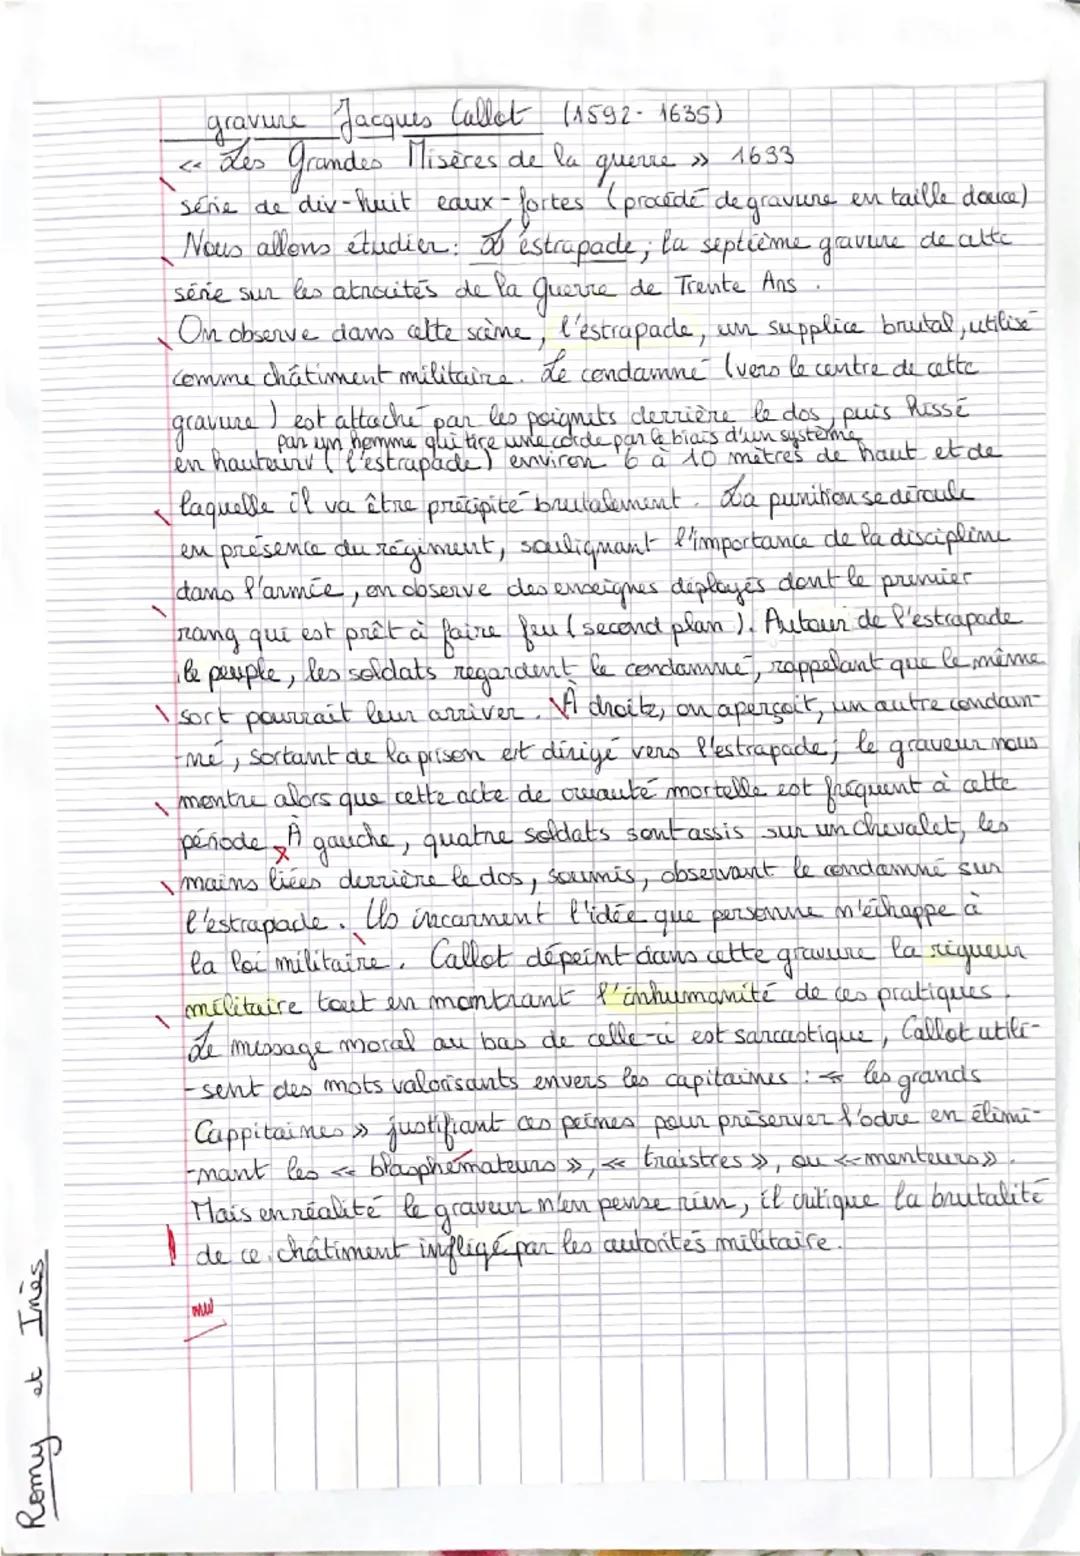 gravure Jacques Callot (1592-1635)
« Les Grandes Misères de la guerre » 1633
série de dix-huit eaux-fortes (procédé de gravure en taille douce)
Nous allons étudier : L'estrapade, la septième gravure de cette
série sur les atrocités de la Guerre de Trente Ans.
On observe dans cette scène, l'estrapade, un supplice brutal, utilisé
comme châtiment militaire. Le condamné (vers le centre de cette
gravure) est attaché par les poignets derrière le dos, puis hissé
par un homme qui tire une corde par le biais d'un système,
en hauteur (l'estrapade) environ 6 à 10 mètres de haut et de
laquelle il va être précipité brutalement. La punition se déroule
en présence du régiment, soulignant l'importance de la discipline
dans l'armée, on observe des enseignes déployés dont le premier
rang qui est prêt à faire feu (second plan). Autour de l'estrapade
le peuple, les soldats regardent le condamné, rappelant que le même
sort pourrait leur arriver. À droite, on aperçoit, un autre condam-
-né, sortant de la prison est dirigé vers l'estrapade, le graveur nous
montre alors que cette acte de cruauté mortelle est fréquent à cette
période. À gauche, quatre soldats sont assis sur un chevalet, les
mains liées derrière le dos, soumis, observant le condamné sur
l'estrapade. Ils incarnent l'idée que personne n'échappe à
la loi militaire. Callot dépeint dans cette gravure la rigueur
militaire tout en montrant l'inhumanité de ces pratiques.
Le message moral au bas de celle-ci est sarcastique, Callot utili-
-sent des mots valorisants envers les capitaines : « les grands
Cappitaines » justifiant ces peines pour préserver l'odre en élimi-
-nant les « blasphémateurs », « traistres », ou « menteurs ».
Mais en réalité le graveur n'en pense rien, il critique la brutalité
de ce châtiment infligé par les autorités militaire.
Romy et Inès